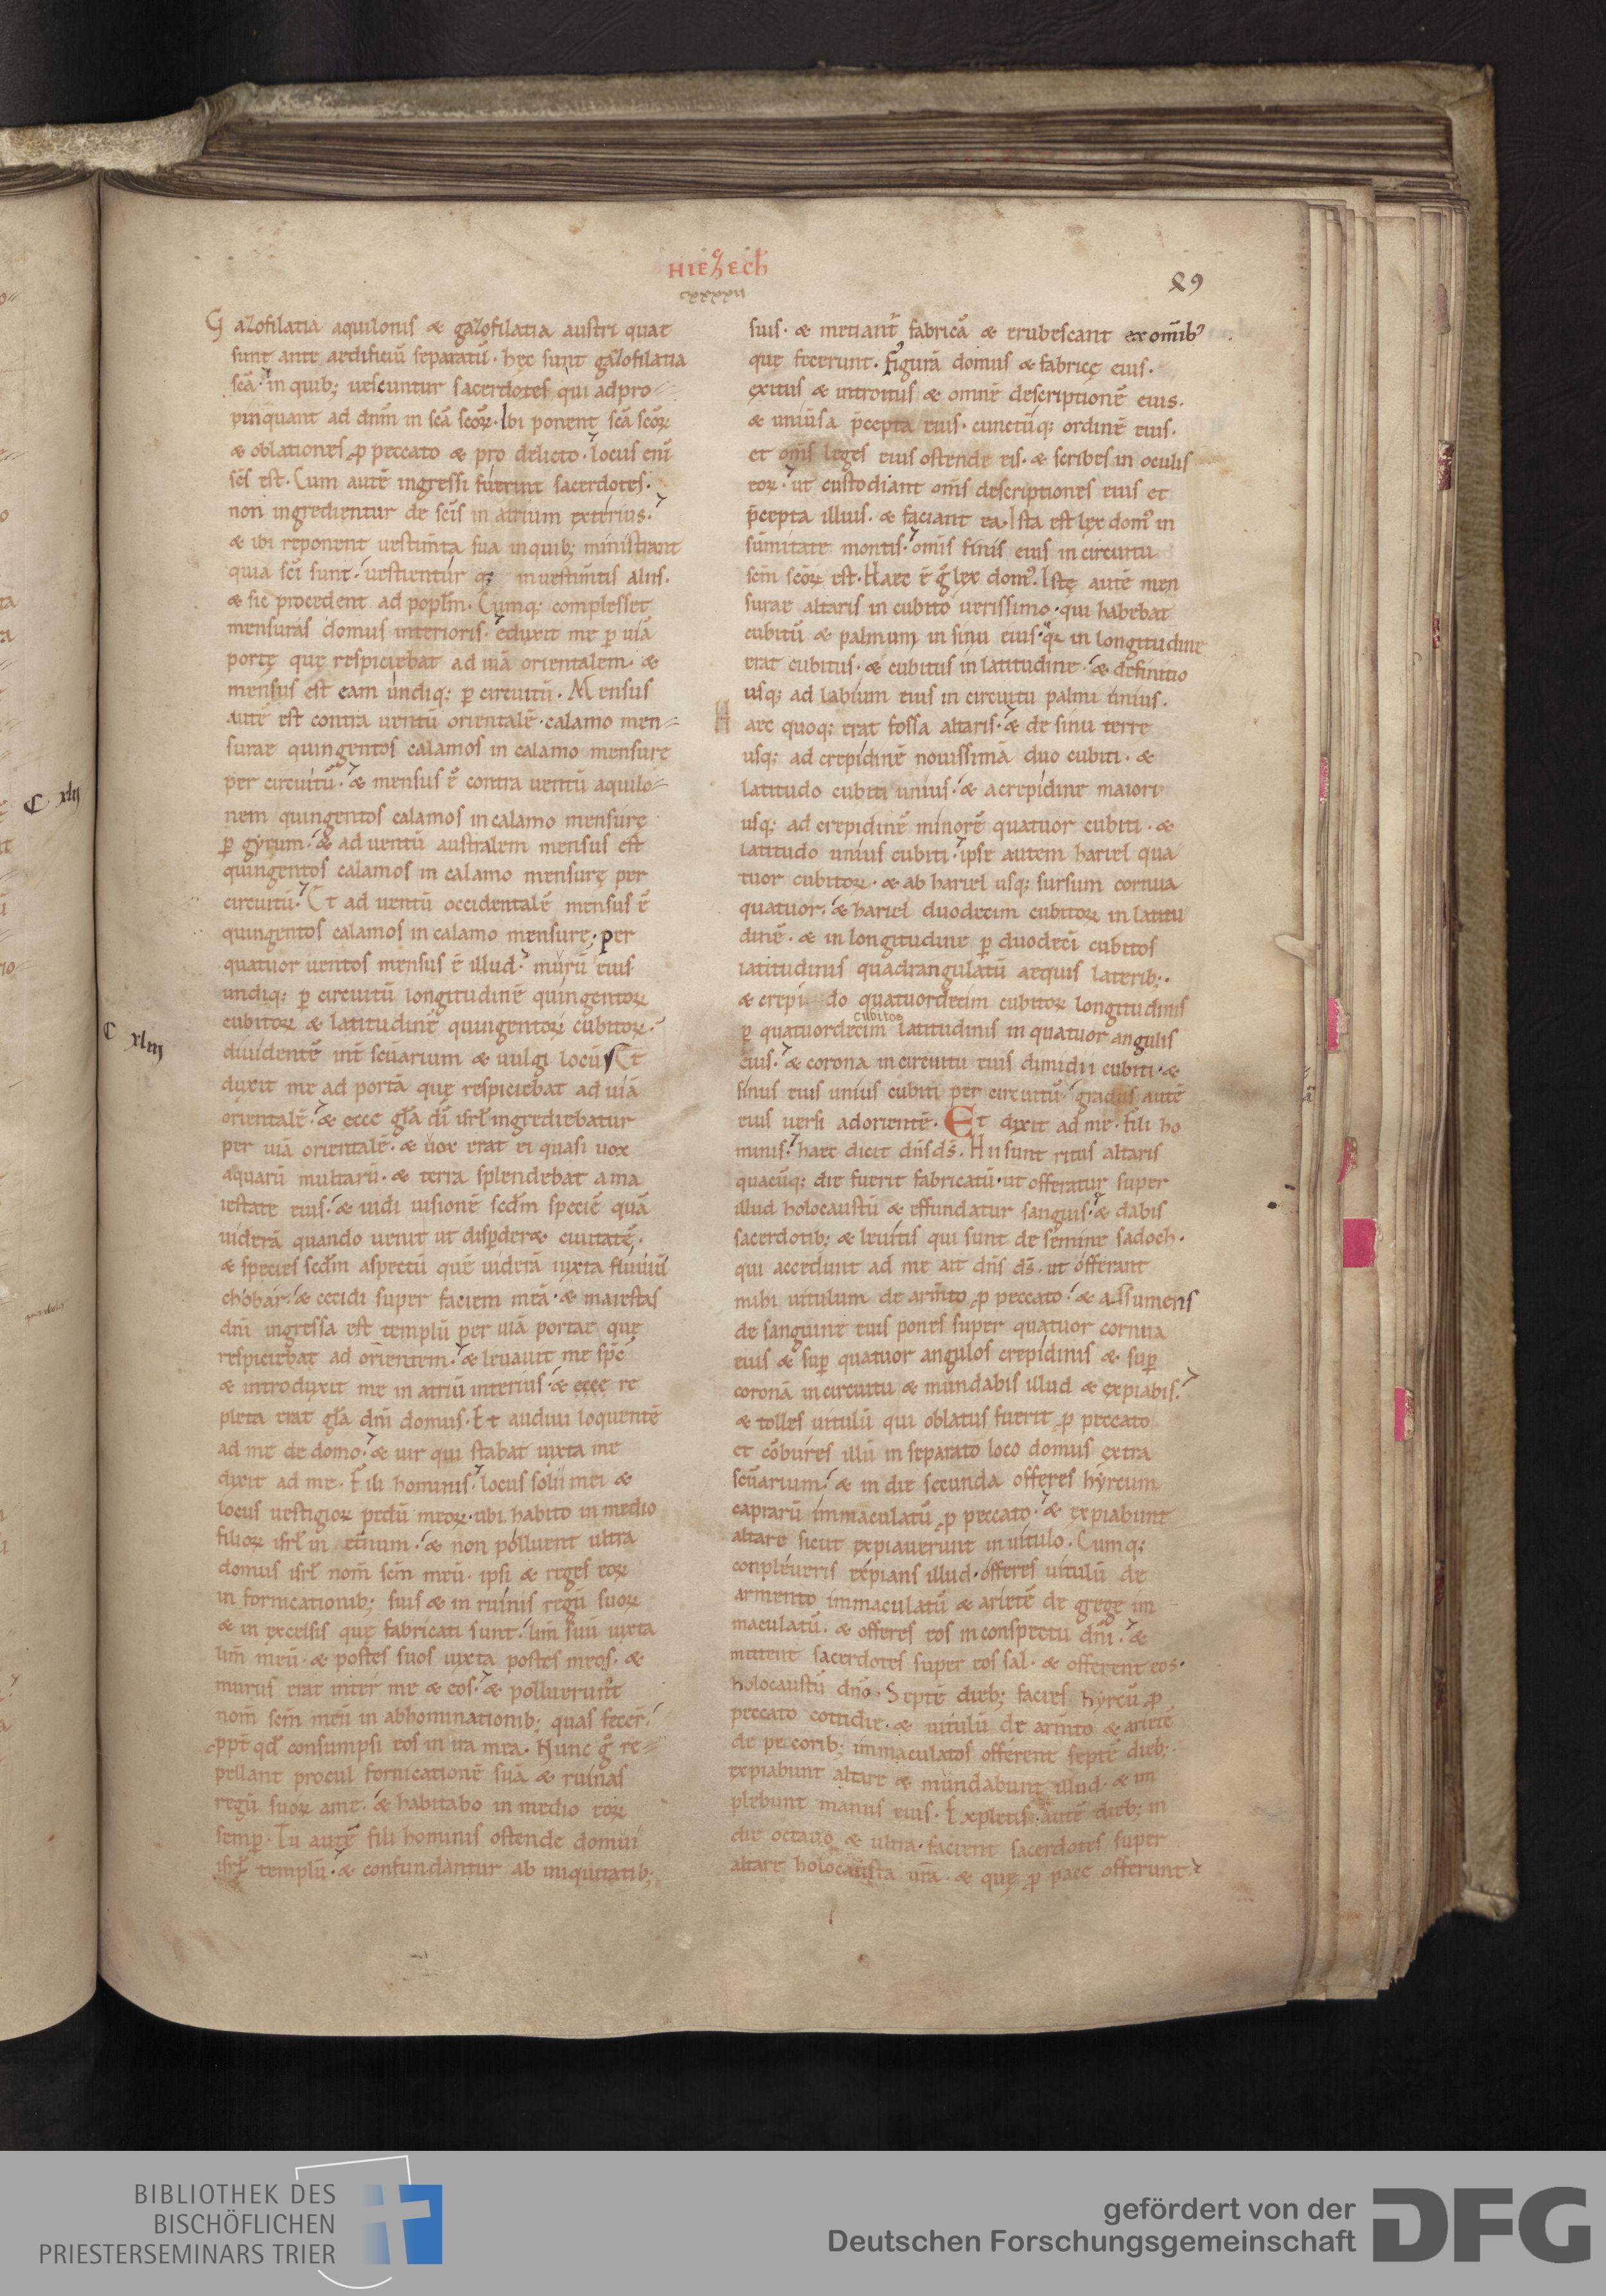 HIEZECH
cxxxxii
89
Gazofilatia aquilonis & gazofilatia austri quae
sunt ante aedificiū separatū. hęc sunt gazofilatia
scā. in quib; uescuntur sacerdotes qui adpro
pinquant ad dnm̄ in scā scōꝝ. Ibi ponent scā scōꝝ
& oblationes ꝓ peccato & pro delicto. locus eni
scs̄ est. Cum autē ingressi fuerint sacerdotes.
non ingredientur de scīs in atrium exterius.
& ibi reponent uestimta sua inquib; ministrant
quia scī sunt. uestientur q; inuestimtis aliis.
& sic procedent ad popłm. Cumq; complesset
mensuras domus interioris. eduxit me ꝑ uiā
portę quę respiciebat ad uiā orientalem. &
mensus est eam undiq; ꝑ circuitū. Mensus
autē est contra uentū orientalē. calamo men
surae quingentos calamos in calamo mensurę
per circuitū. & mensus ē contra uentū aquilo
nem quingentos calamos in calamo mensurę
ꝑ gyrum. & ad uentū australem mensus est
quingentos calamos in calamo mensurę per
circuitū. Et ad uentū occidentalē mensus ē
quingentos calamos in calamo mensurę; per
quatuor uentos mensus ē illud. murū eius
undiq; ꝑ circuitū longitudinē quingentoꝝ
cubitoꝝ & latitudinē quingentoꝝ cubitoꝝ.
C xliij
diuidentē int̄ scūarium & uulgi locū Et
duxit me ad portā quę respiciebat ad uiā
orientalē. & ecce gła dī isrł ingrediebatur
per uiā orientalē. & uox erat ei quasi uox
aquarū multarū. & terra splendebat ama
iestate eius. & uidi uisionē scdm speciē quā
uiderā quando uenit ut disꝑder& ciuitatē.
& species scdm aspectū quē uiderā iuxta fluuiū
chobar. & cecidi super faciem meā. & maiestas
dnī ingressa est templū per uiā portae quę
respiciebat ad orientem. & leuauit me spc̄
& introduxit me in atriū interius. & ecce re
pleta erat gła dnī domus. Et audiui loquentē
ad me de domo. & uir qui stabat iuxta me
dixit ad me. Fili hominis. locus solii mei &
locus uestigioꝝ pedū meoꝝ. ubi habito in medio
filioꝝ isrł in et̄num. & non polluent ultra
domus isrł nom̄ scm̄ meū. ipsi & reges eoꝝ
in fornicationib; suis & in ruinis regū suoꝝ
& in excelsis quę fabricati sunt. lim̄ suū iuxta
lim̄ meū. & postes suos iuxta postes meos. &
murus erat inter me & eos. & polluerunt
nom̄ scm̄ meū in abhominationib; quas fecer̄.
ꝓpt̄ qd̄ consumpsi eos in ira mea. Nunc g° re
pellant procul fornicationē suā & ruinas
regū suoꝝ ame. & habitabo in medio eoꝝ
semꝑ. Tu autē fili hominis ostende domui
isrł templū. & confundantur ab iniquitatib;
suis. & metiant̄ fabricā & erubescant ex omib;
quę fecerunt. figurā domus & fabricę eius.
exitus & introitus & omnē descriptionē eius.
& uniūsa p̄cepta eius. cunctūq; ordinē eius.
et oms̄ leges eius ostende eis. & scribes in oculis
eoꝝ. ut custodiant oms̄ descriptiones eius et
p̄cepta illius. & faciant ea. Ista est lex dom9 in
sūmitate montis. omīs finis eius in circuitu
scm̄ scōꝝ est. Haec ē g° lex dom9. Istę autē men
surae altaris in cubito uerissimo. qui habebat
cubitū & palmum in sinu eius. in longitudine
erat cubitus. & cubitus in latitudine. & definitio
usq; ad labium eius in circuitu palmi unius.
Haec quoq; erat fossa altaris. & de sinu terre
usq; ad crepidinē nouissimā duo cubiti. &
latitudo cubiti unius. & acrepidine maiori
usq; ad crepidinē minorē quatuor cubiti. &
latitudo unius cubiti. ipse autem hariel qua
tuor cubitoꝝ. & ab hariel usq; sursum cornua
quatuor. & hariel duodecim cubitoꝝ in latitu
dinē. & in longitudine ꝑ duodecī cubitos
latitudinis quadrangulatū aequis laterib;.
& crepi do quatuordecim cubitoꝝ longitudinis
cubitos
ꝑ quatuordecim latitudinis in quatuor angulis
eius. & corona in circuitu eius dimidii cubiti. &
sinus eius unius cubiti per circuitū. gradus autē
eius uersi adorientē. Et dixit ad me. Fili ho
minis. haec dicit dn̄s ds̄. Hii sunt ritus altaris
quacūq; die fuerit fabricatū. ut offeratur super
illud holocaustū & effundatur sanguis. & dabis
sacerdotib; & leuitis qui sunt de semine sadoch.
qui accedunt ad me ait dn̄s ds̄. ut offerant
mihi uitulum de arm̄to ꝓ peccato. & adsumens
de sanguine eius pones super quatuor cornua
eius & suꝑ quatuor angulos crepidinis & suꝑ
coronā in circuitu & mundabis illud & expiabis.
& tolles uitulū qui oblatus fuerit ꝓ peccato
et cōbures illū in separato loco domus extra
scūarium. & in die secunda offeres hyrcum
caprarū immaculatū ꝓ peccato. & expiabunt
altare sicut expiauerunt in uitulo. Cumq;
conpleueris expians illud. offeres uitulū de
armento immaculatū & arietē de grege im
maculatū. & offeres eos in conspectu dnī. &
mittent sacerdotes super eos sal. & offerent eos.
holocaustū dnō. Septē dieb; facies hyrcū ꝓ
peccato cottidie. & uitulū de arm̄to & arietē
de pecorib; immaculatos offerent septē dieb;.
expiabunt altare & mundabunt illud. & im
plebunt manus eius. Expletis autē dieb; in
die octauo & ultra. facient sacerdotes super
altare holocausta ur̄a. & quę ꝓ pace offerunt.
C xlij
BIBLIOTHEK DES
BISCHÖFLICHEN
PRIESTERSEMINARS TRIER
gefördert von der
Deutschen Forschungsgemeinschaft
DFG